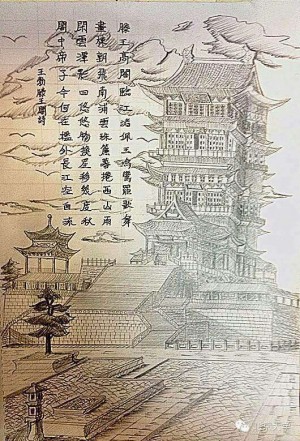 滕王高閣臨江渚佩玉鳴鸞罷歌舞
畫棟朝飛南浦雲珠簾暮捲西山雨
閑雲潭影日悠悠物換星移幾度秋
閣中帝子今何在檻外長江空自流
王勃滕王閣詩